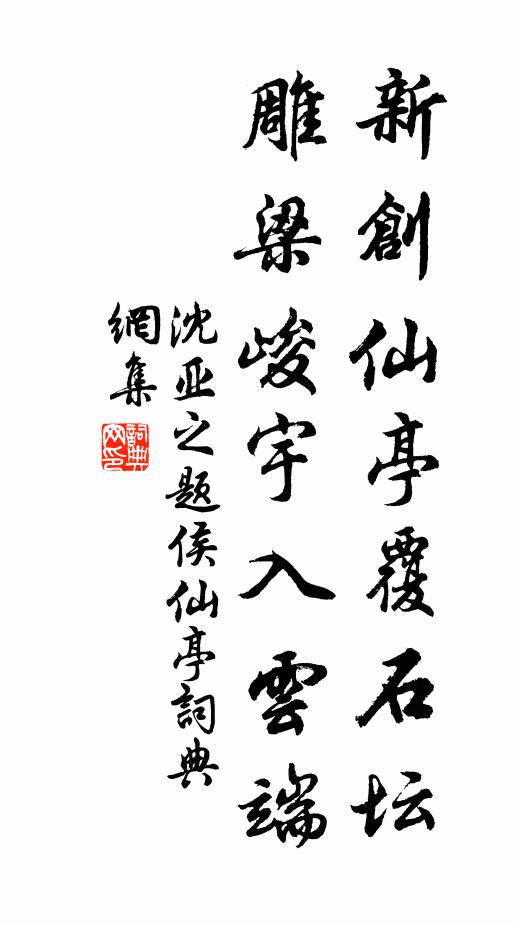 新創仙亭覆石坛
雕梁峻宇入雲端
沈亚之题侯仙亭詞典
網集
詞典
网印